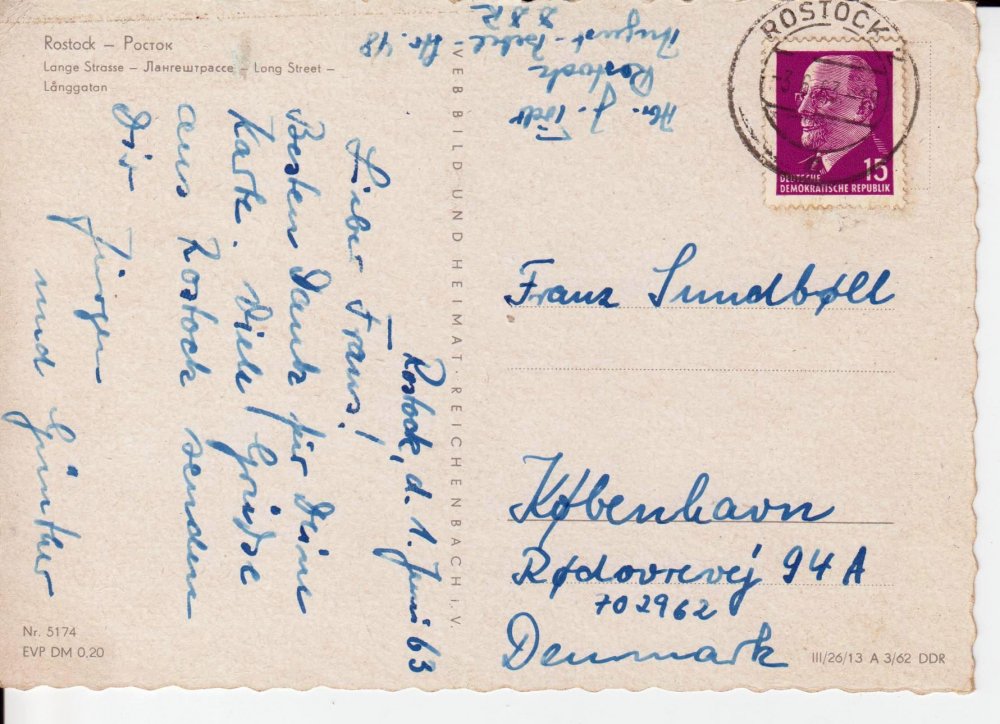 Rostock – Росток
Lange Strasse – Лангештрассе – Long Street –
Långgatan
Rostock
August-Bebel-Str. 48
DDR
ROSTOCK 2
15
DEUTSCHE
DEMOKRATISCHE REPUBLIK
Rostock, d. 1. Juni 63
Lieber Frans!
Besten Dank für Deine
Karte. Viele Grüße
aus Rostock senden
Dir Jürgen
und Günther
VEB BILD UND HEIMAT · REICHENBACH I. V.
Franz Sundbøll
København
Rødovrevej 94 A
702962
Denmark
Nr. 5174
EVP DM 0,20
III/26/13 A 3/62 DDR